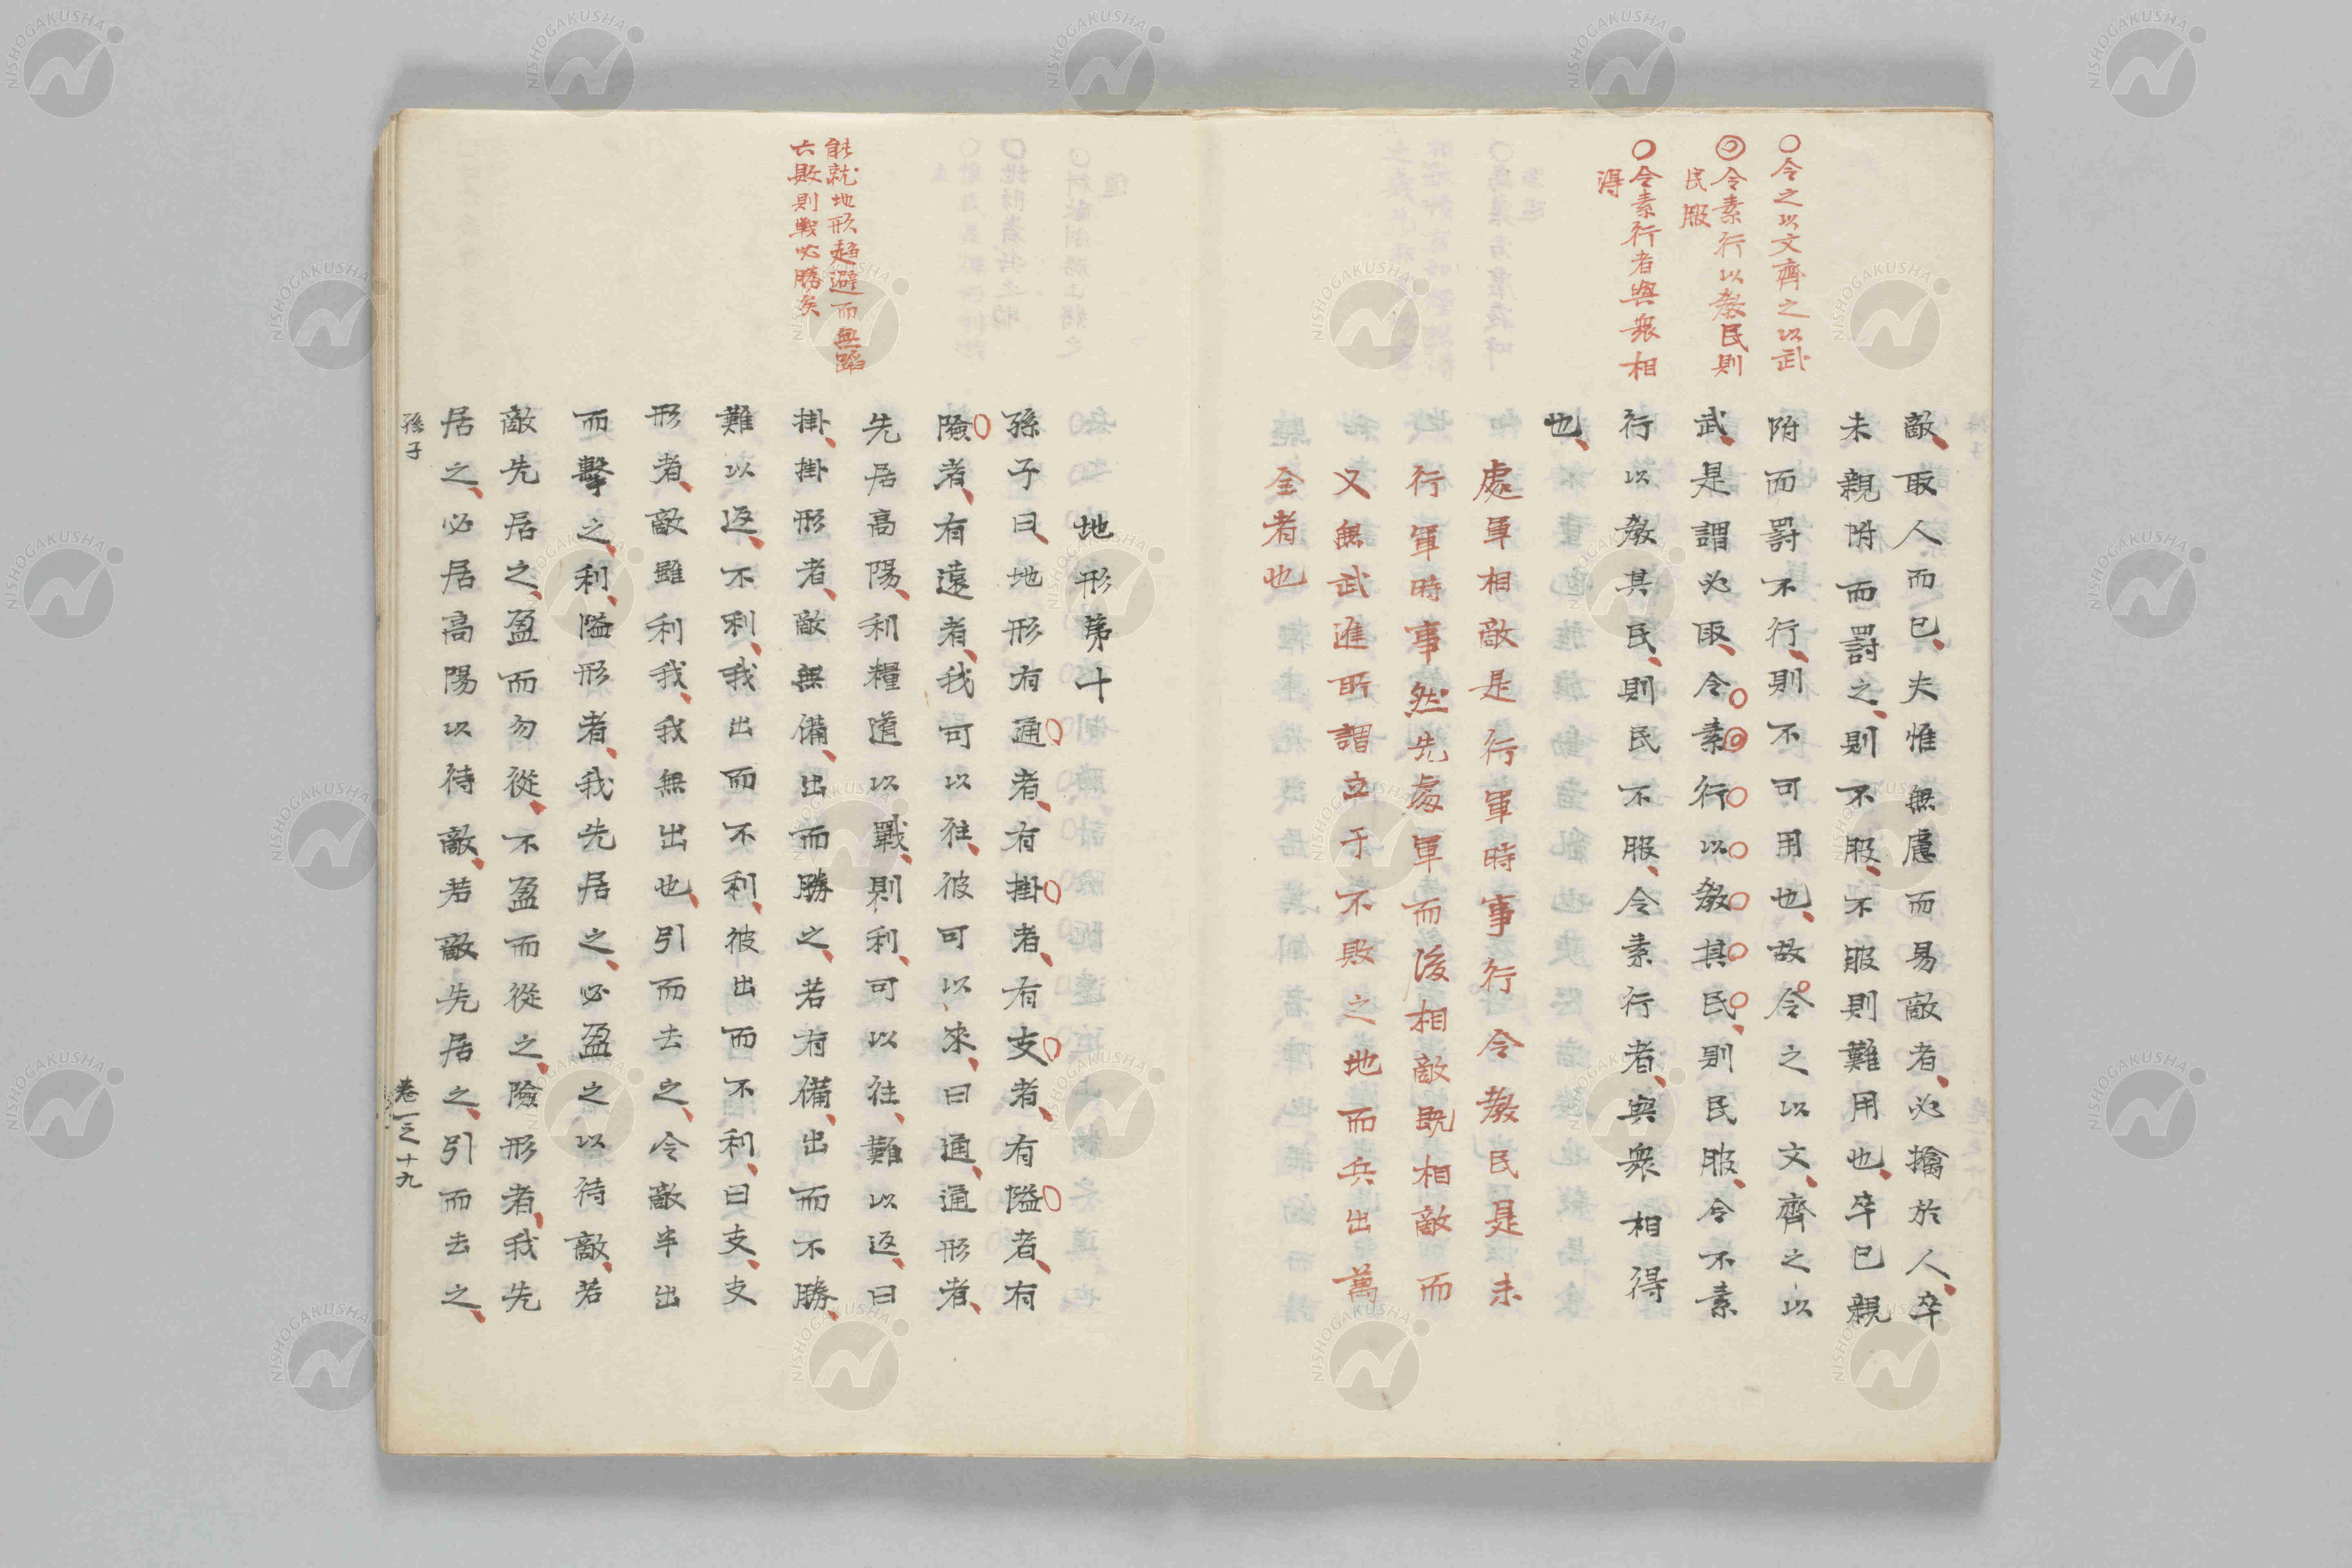 ○令之以文齊之以武
◎令素行以教民則
民服
○令素行者與衆相
得
敵、取人而已、夫惟無慮而易敵者、必擒於人、卒
未親附而罸之、則不服、不服則難用也、卒已親
附而罸不行、則不可用也、故令之以文、齊之以
武、是謂必取、令素行以教其民、則民服、令不素
行以教其民、則民不服、令素行者、與衆相得
也、
處軍相敵是行軍時事行令教民是未
行軍時事然先處軍而後相敵既相敵而
又無武進所謂立于不敗之地而兵出萬
全者也
能就地形趋避而無蹈
六敗則戰必勝矣
地形第十
孫子曰、地形有通者、有掛者、有支者、有隘者、有
險者、有遠者、我可以往、彼可以來、曰通、通形者、
先居高陽、利糧道以戰、則利、可以往、難以返、曰
掛、掛形者、敵無備、出而勝之、若有備、出而不勝、
難以返、不利、我出而不利、彼出而不利、曰支、支
形者、敵雖利我、我無出也、引而去之、令敵半出
而擊之、利、隘形者、我先居之、必盈之以待敵、若
敵先居之、盈而勿從、不盈而從之、險形者、我先
居之、必居高陽以待敵、若敵先居之、引而去之、
孫子
卷一之十九
NISHOGAKUSHA